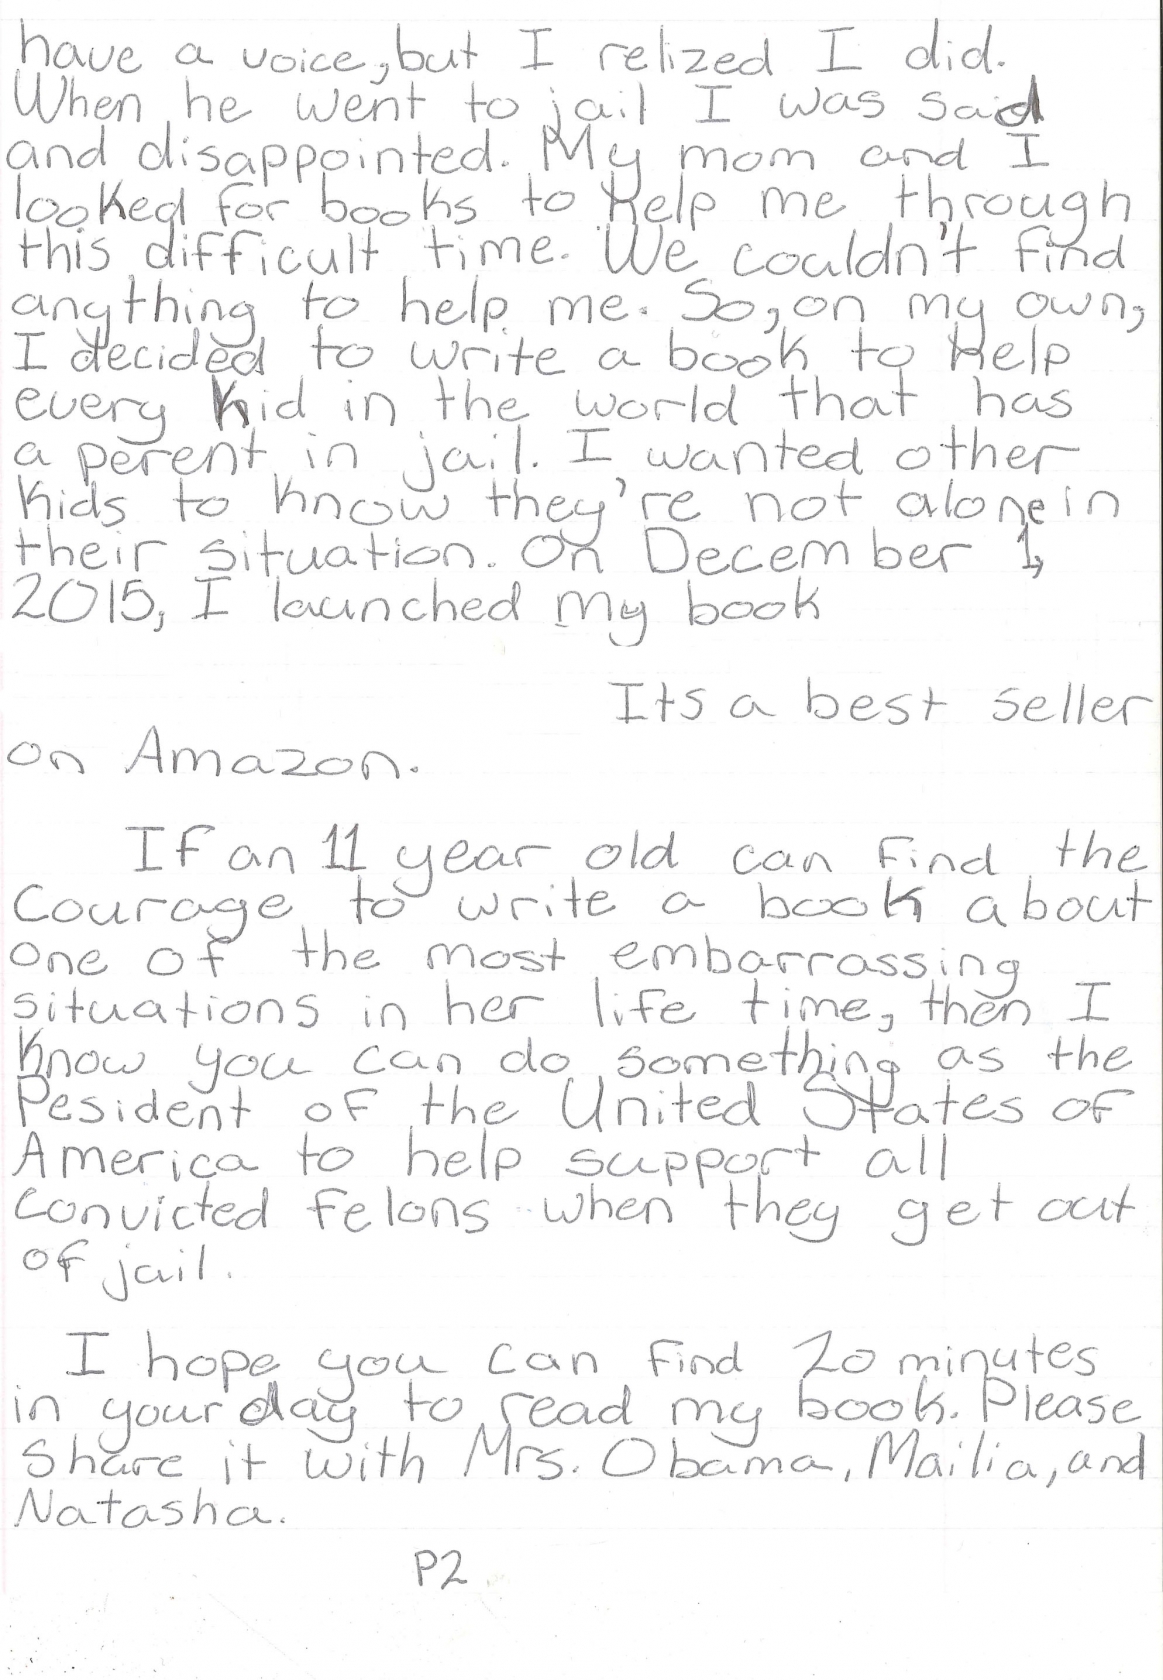 have a voice, but I relized I did.
When he went to jail I was sad
and disappointed. My mom and I
looked for books to help me through
this difficult time. We couldn't find
anything to help me. So, on my own,
I decided to write a book to help
every kid in the world that has
a perent in jail. I wanted other
kids to know they're not alone in
their situation. On December 1,
2015, I launched my book
Its a best seller
on Amazon.
If an 11 year old can find the
courage to write a book about
one of the most embarrassing
situations in her life time, then I
know you can do something as the
Pesident of the United States of
America to help support all
convicted felons when they get out
of jail.
I hope you can find 20 minutes
in your day to read my book. Please
share it with Mrs. Obama, Mailia, and
Natasha.
P2